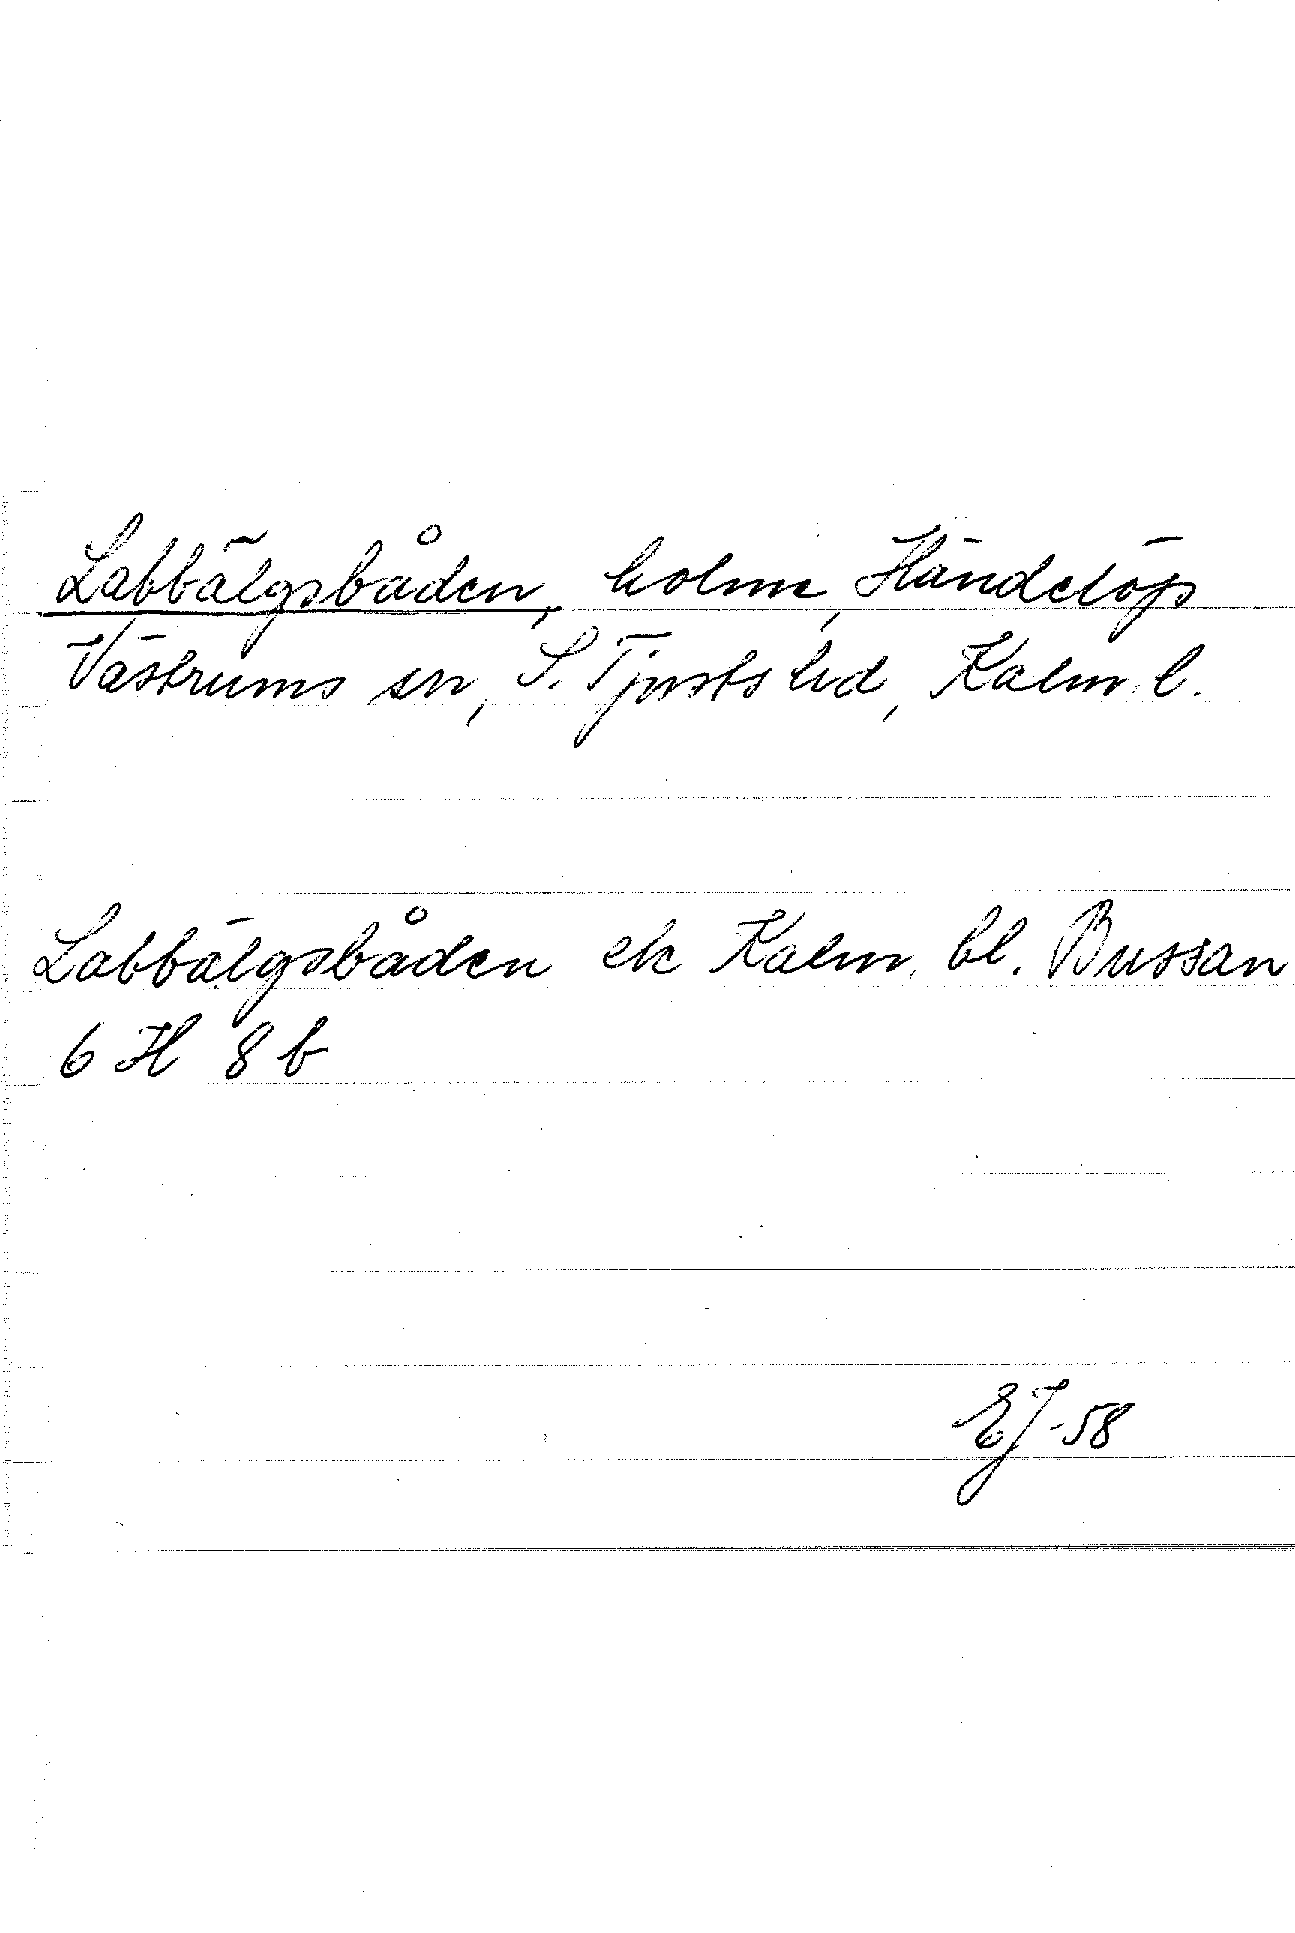 Labbälgsbåden, holme, Händelöp
Västrums sn, S. Tjusts hd, Kalm. l.
Labbälgsbåden ek Kalm. bl. Bussan
6 H 8 b
EJ -58